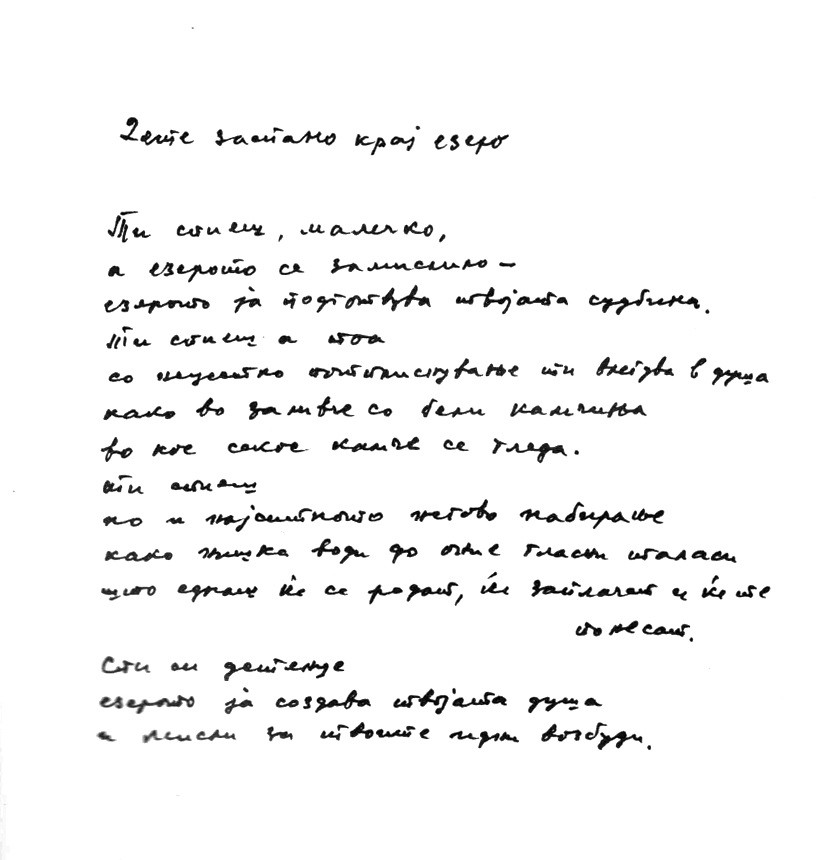 Дете застано крај езеро
Ти стиш, малечко,
а езерото се замислило –
езерото ја подготвува твојата судбина.
Ти стоиш а тоа
со нечујно потплиснување ти влегува в душа
како во заливче со бели камчиња
во кое секое камче се гледа.
Ти стоиш
но и најситното негово набирање
како нишка води до оние гласни таласи
што еднаш ќе се родат, ќе заплачат и ќе те
понесат.
Стој детенце
езерото ја создава твојата душа
и мисли за твоите идни возбуди.